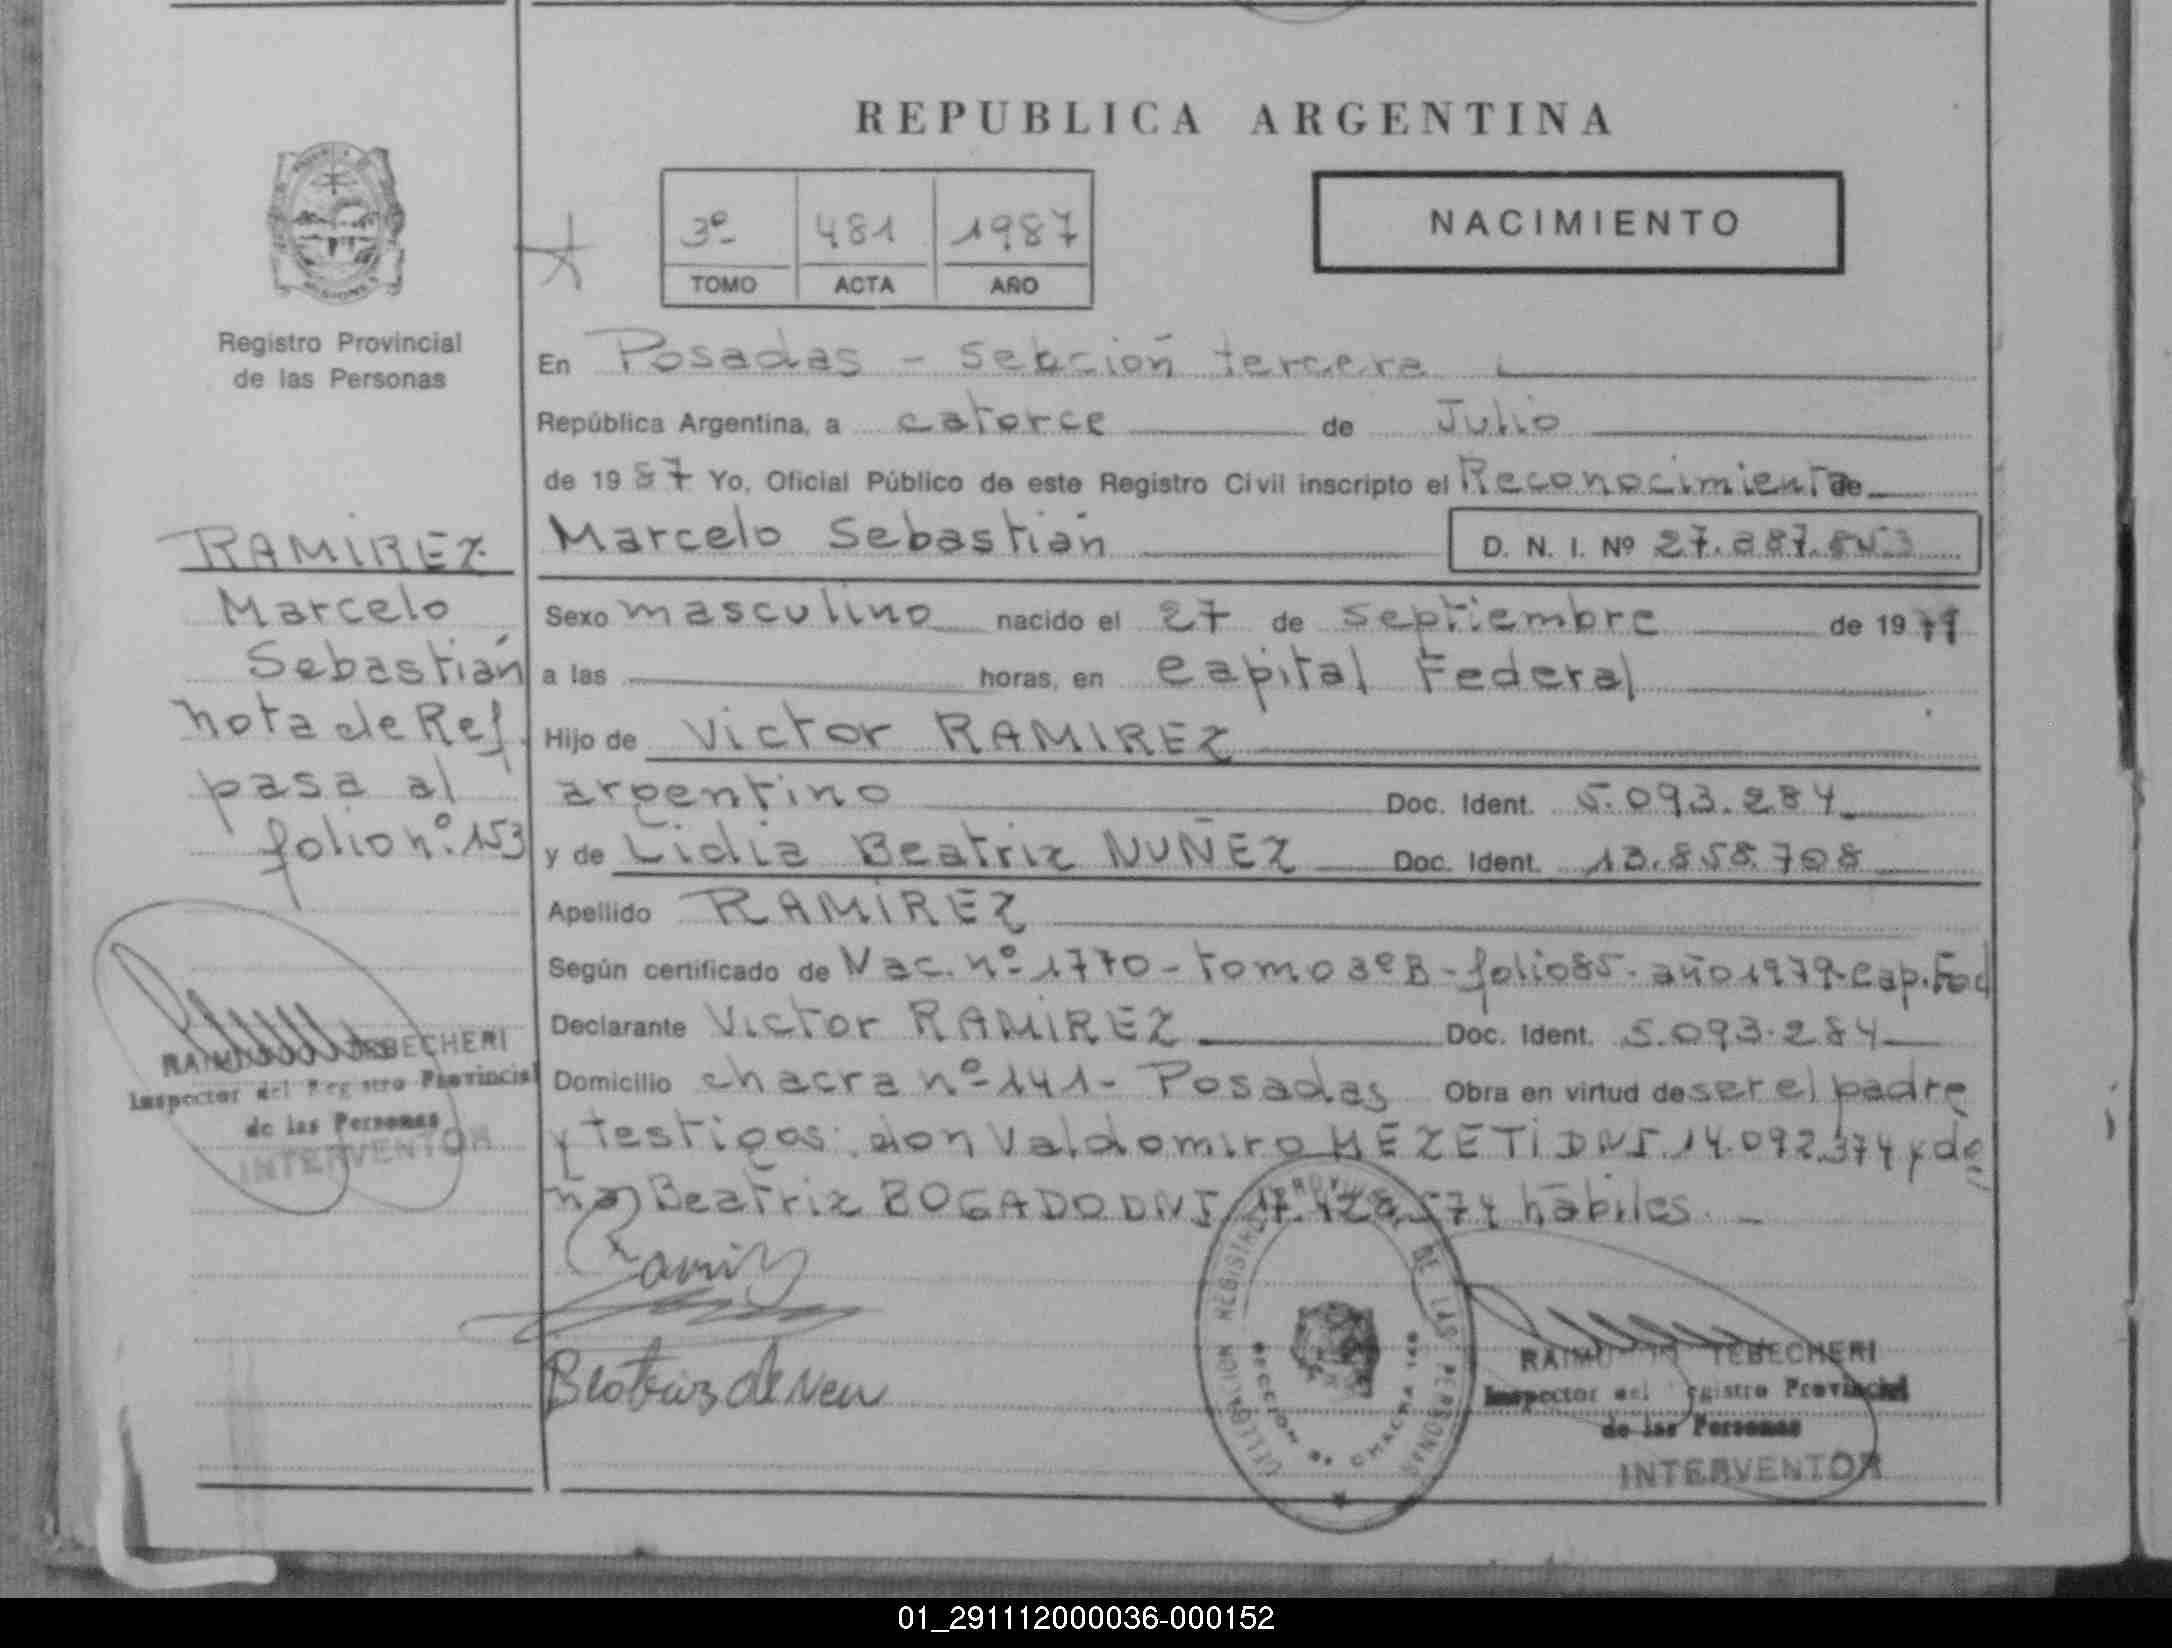 REPUBLICA ARGENTINA
3º 481 1987
TOMO ACTA AÑO
NACIMIENTO
Registro Provincial
de las Personas
RAMIREZ
Marcelo
Sebastián
nota de Ref.
pasa al
folio nº. 153
TEBECHERI
Inspector del Registro Provincial
de las Personas
INTERVENTOR
En Posadas - Sección tercera
República Argentina, a catorce de Julio
de 1987 Yo, Oficial Público de este Registro Civil inscripto el Reconocimiento de
Marcelo Sebastián D. N. I. Nº
Sexo masculino nacido el 27 de septiembre de 1979
a las horas, en Capital Federal
Hijo de Victor RAMIREZ
argentino Doc. Ident. 5.093.284
y de Lidia Beatriz NUÑEZ Doc. Ident. 13.858.708
Apellido RAMIREZ
Según certificado de Nac. nº 1770 - tomo 3º B - folio 85 - año 1979 - Cap. Fed
Declarante Victor RAMIREZ Doc. Ident. 5.093.284
Domicilio chacra nº 141 - Posadas Obra en virtud de ser el padre
y testigos: don Valdomiro MEZETI DNI. 14.092.374 y do
ña Beatriz BOGADO DNI hábiles.
Beatriz de Neu
DELEGACION REGISTRO PROVINCIAL DE LAS PERSONAS
SECCION DE CHACRA
TEBECHERI
Inspector del Registro Provincial
de las Personas
INTERVENTOR
01_291112000036-000152